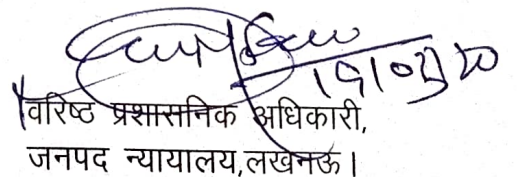 वरिष्ठ प्रशासनिक अधिकारी,
जनपद न्यायालय,लखनऊ।